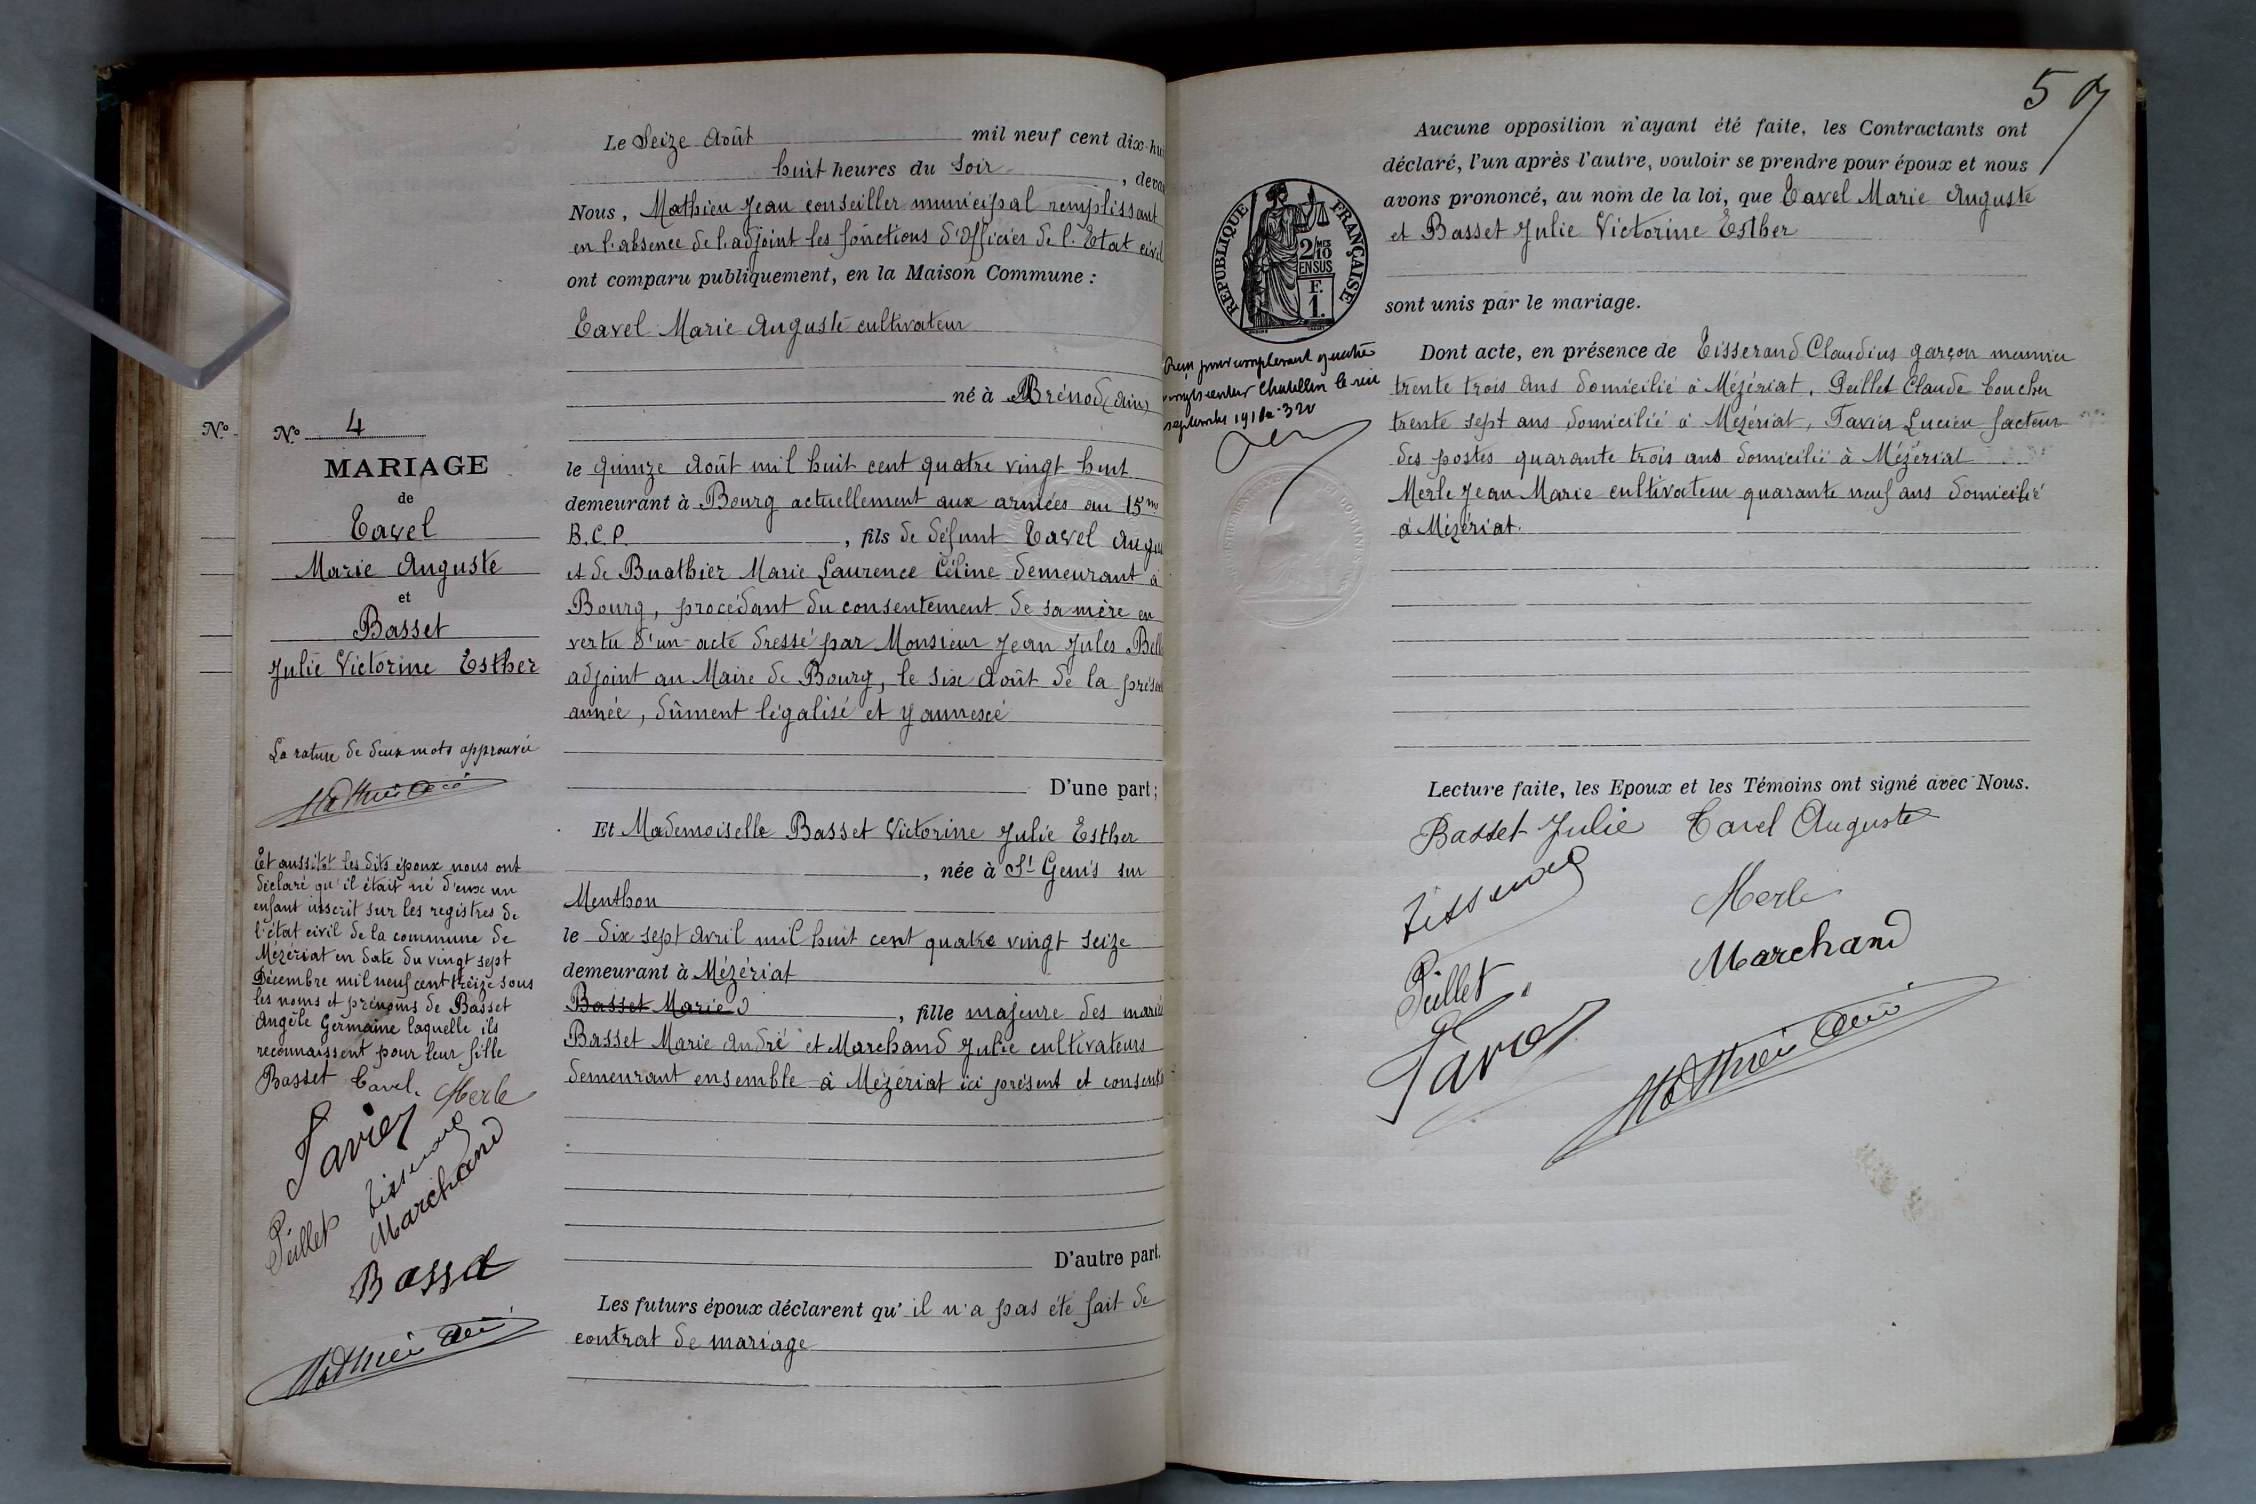 Le Seize Août mil neuf cent dix-hui
huit heures du Soir , deva
Nous, Mathieu Jean conseiller municipal remplissant
en l'absence de l'adjoint les fonctions d'Officier de l'Etat civil
ont comparu publiquement, en la Maison Commune :
Tavel Marie Auguste cultivateur
né à Brénod (Ain)
le quinze Août mil huit cent quatre vingt huit
demeurant à Bourg actuellement aux armées au 15me
B.C.P. , fils de défunt Tavel Augus
et de Buathier Marie Laurence Céline demeurant à
Bourg, procédant du consentement de sa mère en
vertu d'un acte dressé par Monsieur Jean Jules Bell
adjoint au Maire de Bourg, le six Août de la présen
année, dûment légalisé et y annexé
D'une part;
Et Mademoiselle Basset Victorine Julie Esther
, née à St Genis sur
Menthon
le dix sept Avril mil huit cent quatre vingt seize
demeurant à Mézériat
Basset Marie , fille majeure des mariés
Basset Marie André et Marchand Julie cultivateurs
demeurant ensemble à Mézériat ici présent et consent
D'autre part.
Les futurs époux déclarent qu' il n'a pas été fait de
contrat de mariage
No
No 4
MARIAGE
de
Tavel
Marie Auguste
et
Basset
Julie Victorine Esther
La rature de deux mots approuvée
Mathieu
Et aussitôt les dits époux nous ont
déclaré qu'il était né d'eux un
enfant inscrit sur les registres de
l'état civil de la commune de
Mézériat en date du vingt sept
Décembre mil neuf cent treize sous
les noms et prénoms de Basset
Angèle Germaine laquelle ils
reconnaissent pour leur fille
Basset Tavel. Merle
Favier
Tisserand
Peillet Marchand
Basset
Mathieu
57
Aucune opposition n'ayant été faite, les Contractants ont
déclaré, l'un après l'autre, vouloir se prendre pour époux et nous
avons prononcé, au nom de la loi, que Tavel Marie Auguste
et Basset Julie Victorine Esther
sont unis par le mariage.
REPUBLIQUE FRANÇAISE
2/10MES
EN SUS
F.
1.
Dont acte, en présence de Tisserand Claudius garçon meunier
trente trois ans domicilié à Mézériat, Peillet Claude boucher
trente sept ans domicilié à Mézériat, Favier Lucien facteur
des postes quarante trois ans domicilié à Mézériat
Merle Jean Marie cultivateur quarante neuf ans domicilié
à Mézériat.
Lecture faite, les Epoux et les Témoins ont signé avec Nous.
Basset Julie Tavel Auguste
Tisserand Merle
Peillet Marchand
Favier
Mathieu